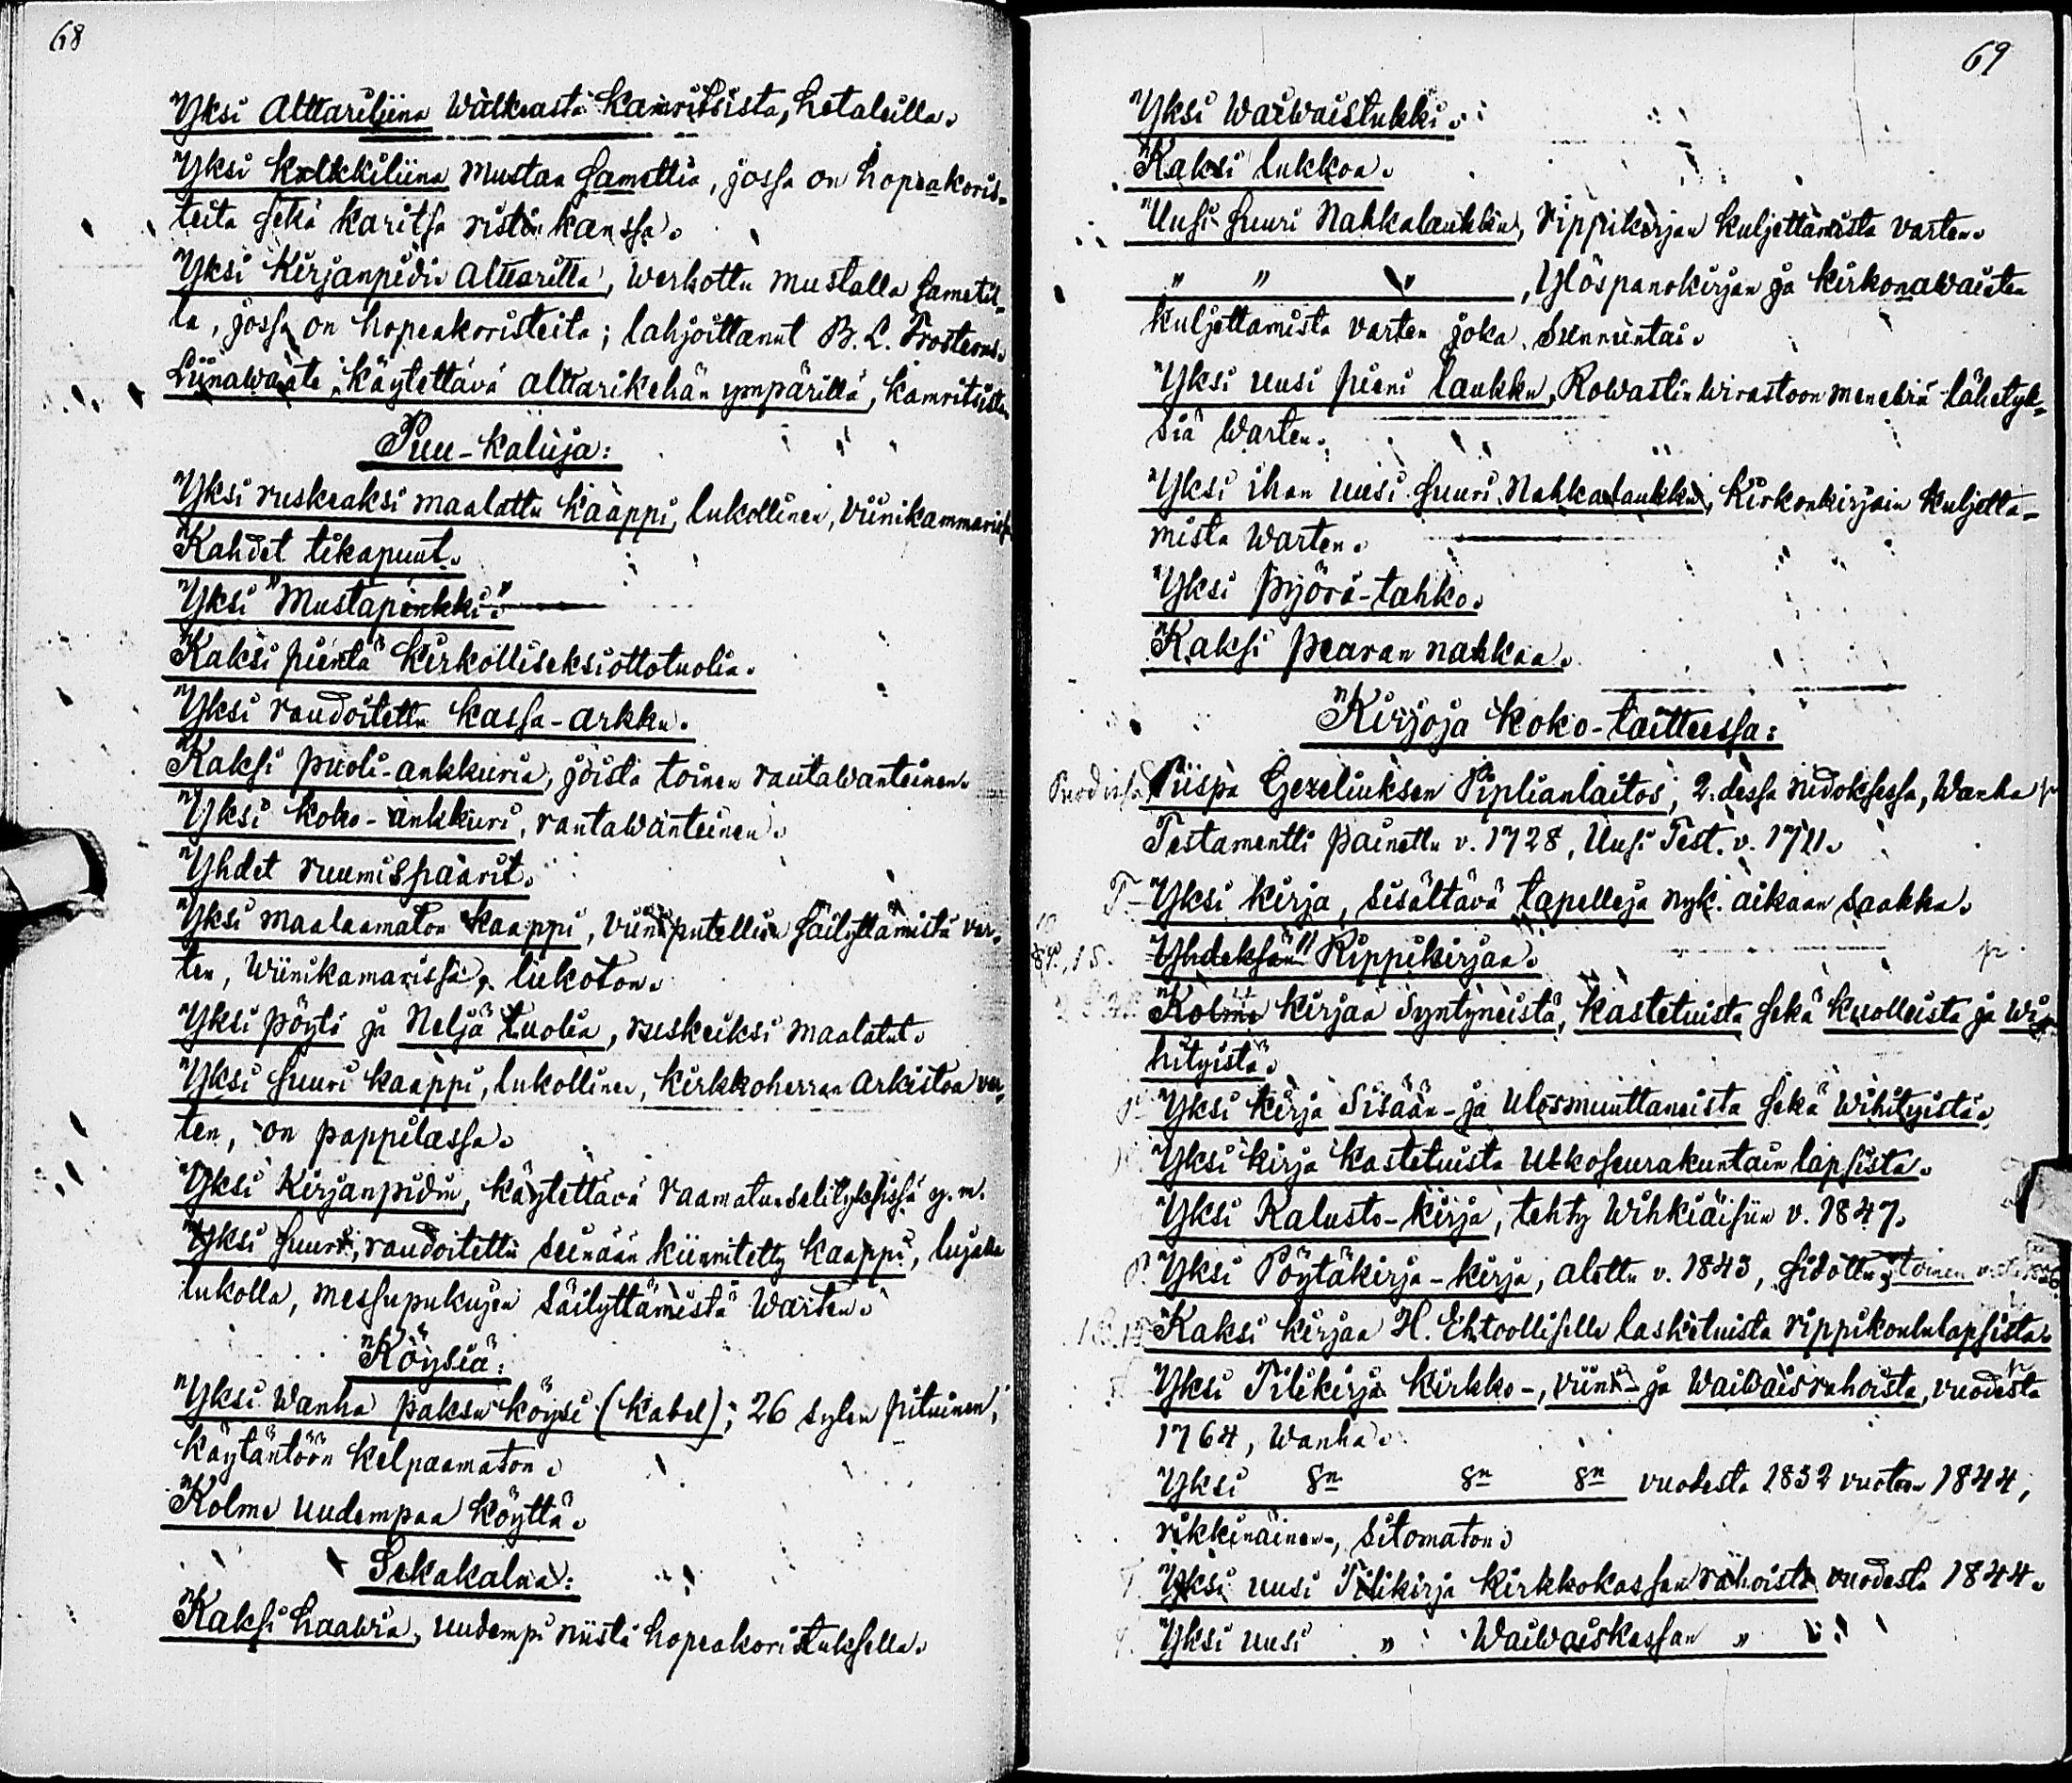 68
Yksi Alttariliina Walkeasta kamritsista, hetaleilla.
Yksi kalkkiliina Mustaa Samettia, jossa on hopeakoris-
teita sekä karitsa ristin kanssa.
Yksi Kirjanpidin Alttarilla, werhottu mustalla sametil-
la, jossa on hopeakoristeita; lahjoittanut B. L. Frosterus.
Liinawaate, käytettävä alttarikehän ympärillä, kamritsista
Puu-kaluja:
Yksi ruskeaksi maalattu kaappi, lukollinen, viinikammarissa
Kahdet tikapuut.
Yksi "Mustapenkki".
Kaksi pientä Kirkolliseksiottotuolia.
Yksi raudoitettu kassa-arkku.
Kaksi puoli-ankkuria, joista toinen rautawanteinen.
Yksi koko-ankkuri, rautawanteinen.
Yhdet ruumispaarit.
Yksi maalaamaton kaappi, viiniputellien säilyttämistä var-
ten, Wiinikamarissa, lukoton.
Yksi pöytä ja Neljä tuolia, ruskeiksi maalatut.
Yksi suuri kaappi, lukollinen, Kirkkoherran Arkistoa var-
ten, on pappilassa.
Yksi Kirjanpidin, käytettävä raamatunselityksissä y.m.
Yksi suuri, raudoitettu seinään kiinnitetty kaappi, lujalla
lukolla, messupukujen säilyttämistä Warten.
Köysiä:
Yksi Wanha paksu köysi (kabel); 26 sylen pituinen,
käytäntöön kelpaamaton.
Kolme uudempaa köyttä.
Sekakalua:
Kaksi haawia, uudempi niistä hopeakoristuksella.
69
Yksi Waiwaistukki.
Kaksi lukkoa.
Uusi suuri Nahkalaukku, rippikirjan kuljettamista varten.
" " " , Ylöspanokirjan ja kirkonawainten
kuljettamista varten joka Sunnuntai.
Yksi uusi pieni laukku, Rowastin wirastoon meneviä lähetyk-
siä Warten.
Yksi ihan uusi suuri Nahkalaukku, Kirkonkirjain kuljetta-
mista Warten.
Yksi pyörä-tahko.
Kaksi peuran nahkaa.
Kirjoja koko-taitteessa:
Piispa Gezeliuksen Piplianlaitos, 2.dessa nidoksessa, Wanha
Testamentti painettu v. 1728, Uusi Test. v. 1711.
T. Yksi kirja, sisältävä tapelleja nyk. aikaan saakka.
Yhdeksän Rippikirjaa.
Kolme kirjaa syntyneistä, kastetuista sekä kuolleista ja wi-
hityistä.
Yksi kirja Sisään- ja Ulosmuuttaneista sekä Wihityistä.
Yksi kirja kastetuista Ulkoseurakuntain lapsista.
Yksi Kalusto-kirja, tehty Wihkiäisiin v. 1847.
P. Yksi Pöytäkirja-kirja, alettu v. 1843, sidottu, toinen
Kaksi kirjaa H. Ehtoolliselle lasketuista rippikoululapsista.
Yksi Tilikirja kirkko-, viini- ja Waiwaisrahoista, vuodesta
1764, Wanha.
Yksi 8n 8n 8n vuodesta 1832 vuoteen 1844,
rikkinäinen, sitomaton.
T. Yksi uusi Tilikirja kirkkokassan rahoista vuodesta 1844.
Yksi uusi " Waiwaiskassan "